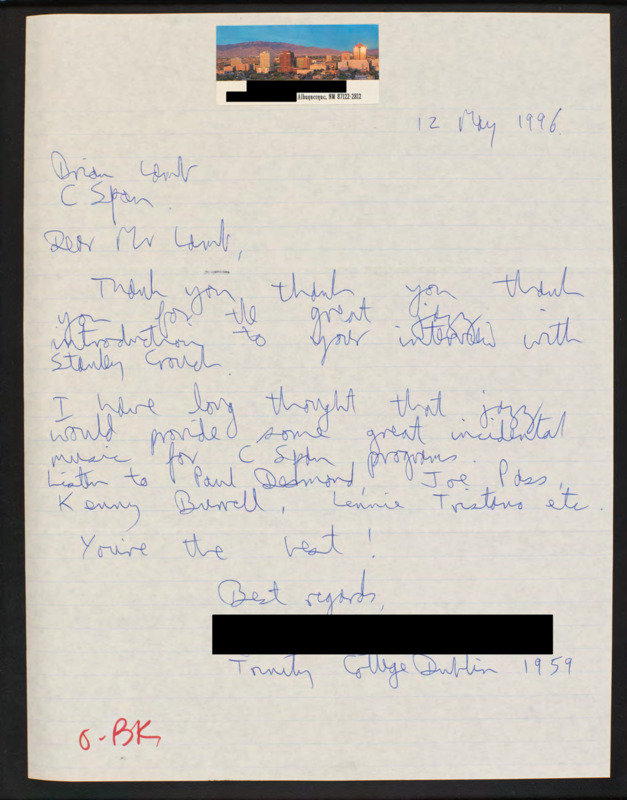 Albuquerque, NM 87122-2012
12 May 1996.
Brian Lamb
C Span.
Dear Mr Lamb,
Thank you thank you thank
you for the great jazz
introduction to your interview with
Stanley Crouch.
I have long thought that jazz
would provide some great incidental
music for C Span programs.
Listen to Paul Desmond, Joe Pass,
Kenny Burrell, Lennie Tristano etc.
You're the best!
Best regards,
Trinity College Dublin 1959
O-BK